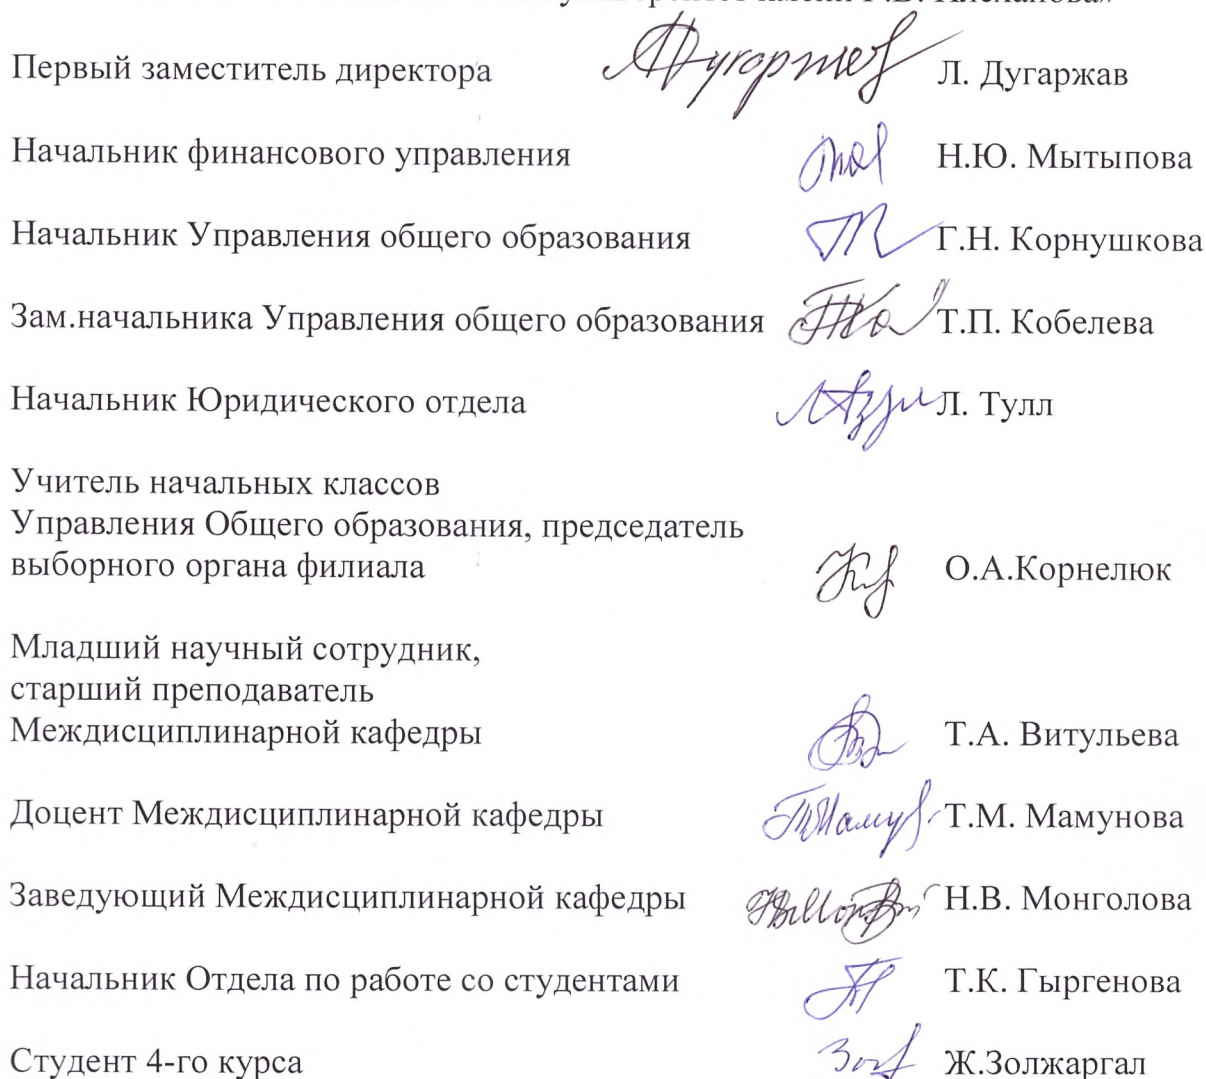 имени Г.В. Плеханова»
Первый заместитель директора Л. Дугаржав
Начальник финансового управления Н.Ю. Мытыпова
Начальник Управления общего образования Г.Н. Корнушкова
Зам.начальника Управления общего образования Т.П. Кобелева
Начальник Юридического отдела Л. Тулл
Учитель начальных классов
Управления Общего образования, председатель
выборного органа филиала О.А.Корнелюк
Младший научный сотрудник,
старший преподаватель
Междисциплинарной кафедры Т.А. Витульева
Доцент Междисциплинарной кафедры Т.М. Мамунова
Заведующий Междисциплинарной кафедры Н.В. Монголова
Начальник Отдела по работе со студентами Т.К. Гыргенова
Студент 4-го курса Ж.Золжаргал